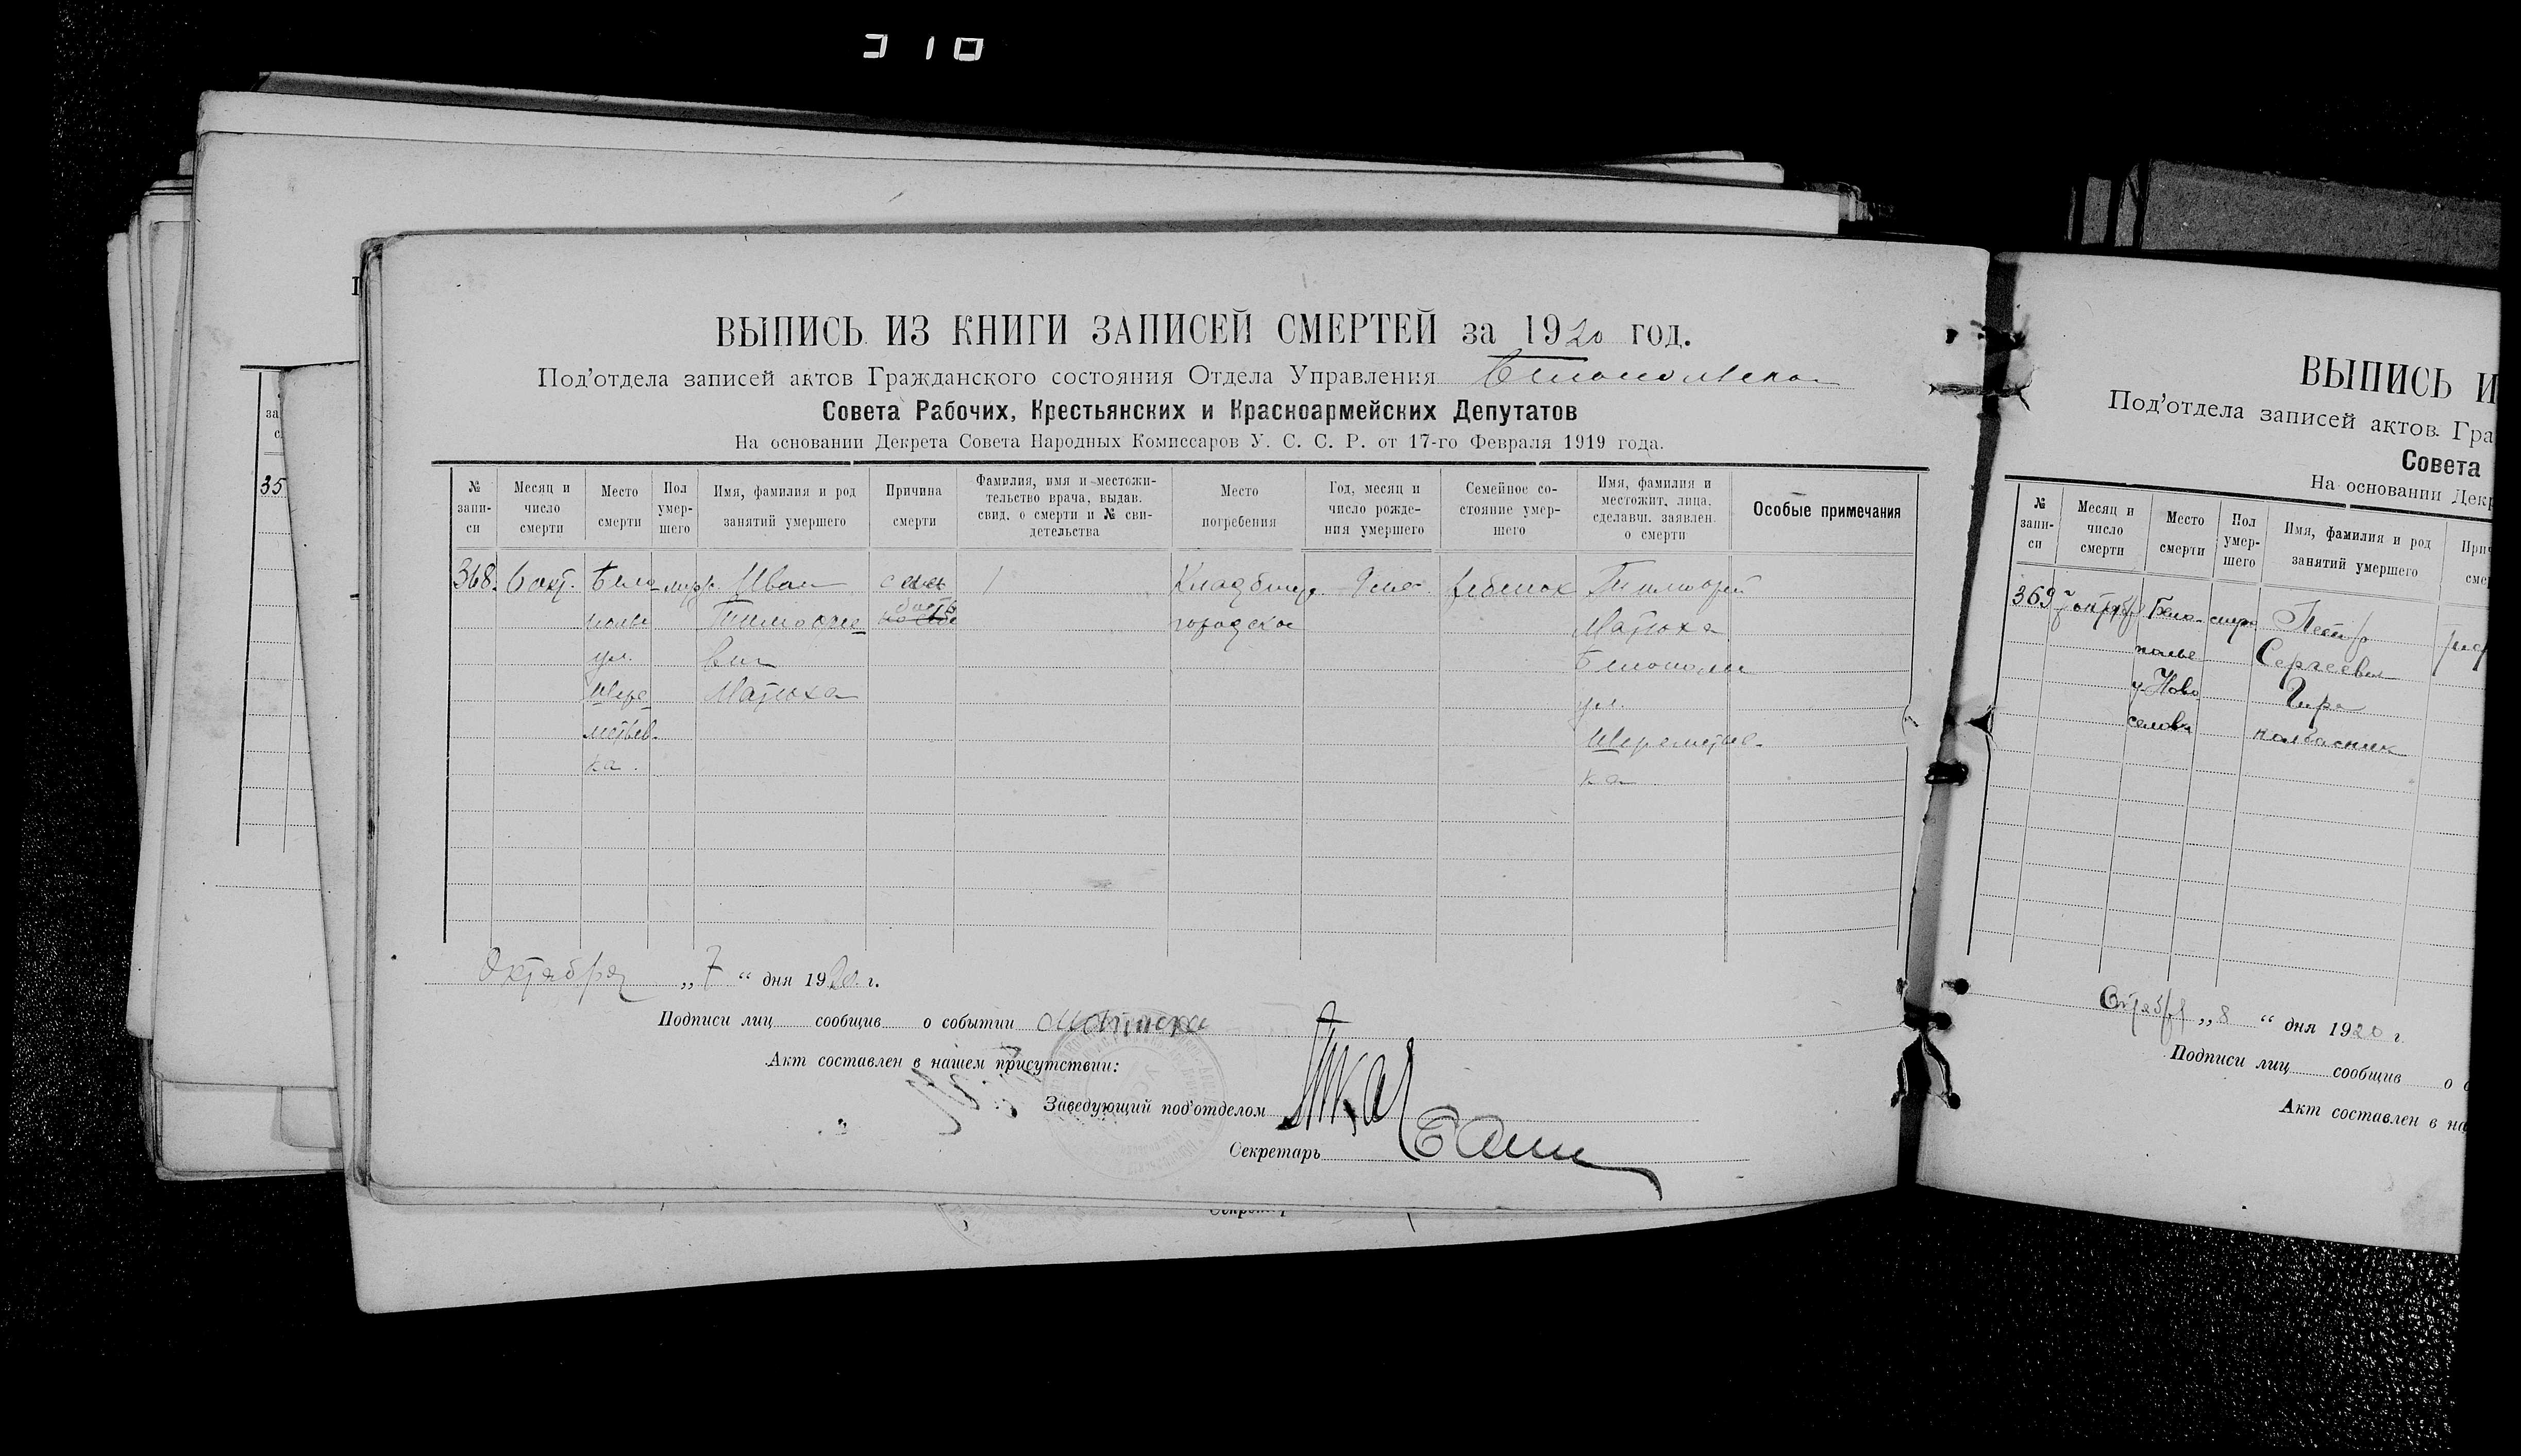 310
ВЫПИСЬ ИЗ КНИГИ ЗАПИСЕЙ СМЕРТЕЙ за 1920 год.
Под'отдела записей актов Гражданского состояния Отдела Управления
Совета Рабочих, Крестьянских и Красноармейских Депутатов
На основании Декрета Совета Народных Комиссаров У. С. С. Р. от 17-го Февраля 1919 года.
№ запи-си
Месяц и число смерти
Место смерти
Пол умер-шего
Имя, фамилия и род занятий умершего
Причина смерти
Фамилия, имя и местожи-тельство врача, выдав. свид. о смерти и № сви-детельства
Место погребения
Год, месяц и число рожде-ния умершего
Семейное со-стояние умер-шего
Имя, фамилия и местожит. лица, сделавш. заявлен. о смерти
Особые примечания
368. 6 окт. Бело- Иван Кладбище ребенок Тимофей
полье Тимофее городское Матюха
ул. вич Белополье
Шере Матюха ул.
метьев- Шереметьев-
ка. ка
Октября „7“ дня 1920 г.
Подписи лиц сообщив о событии
Акт составлен в нашем присутствии:
Заведующий под'отделом
Секретарь
35
ВЫПИСЬ И
Под'отдела записей актов Гра
Совета
На основании Декр
№ запи-си
Месяц и число смерти
Место смерти
Пол умер-шего
Имя, фамилия и род занятий умершего
369 7 октября Бело- Петр
полье Сергеевич
у. Ново Гира
селовка колбасник
Октября „8“ дня 1920 г.
Подписи лиц сообщив о с
Акт составлен в на